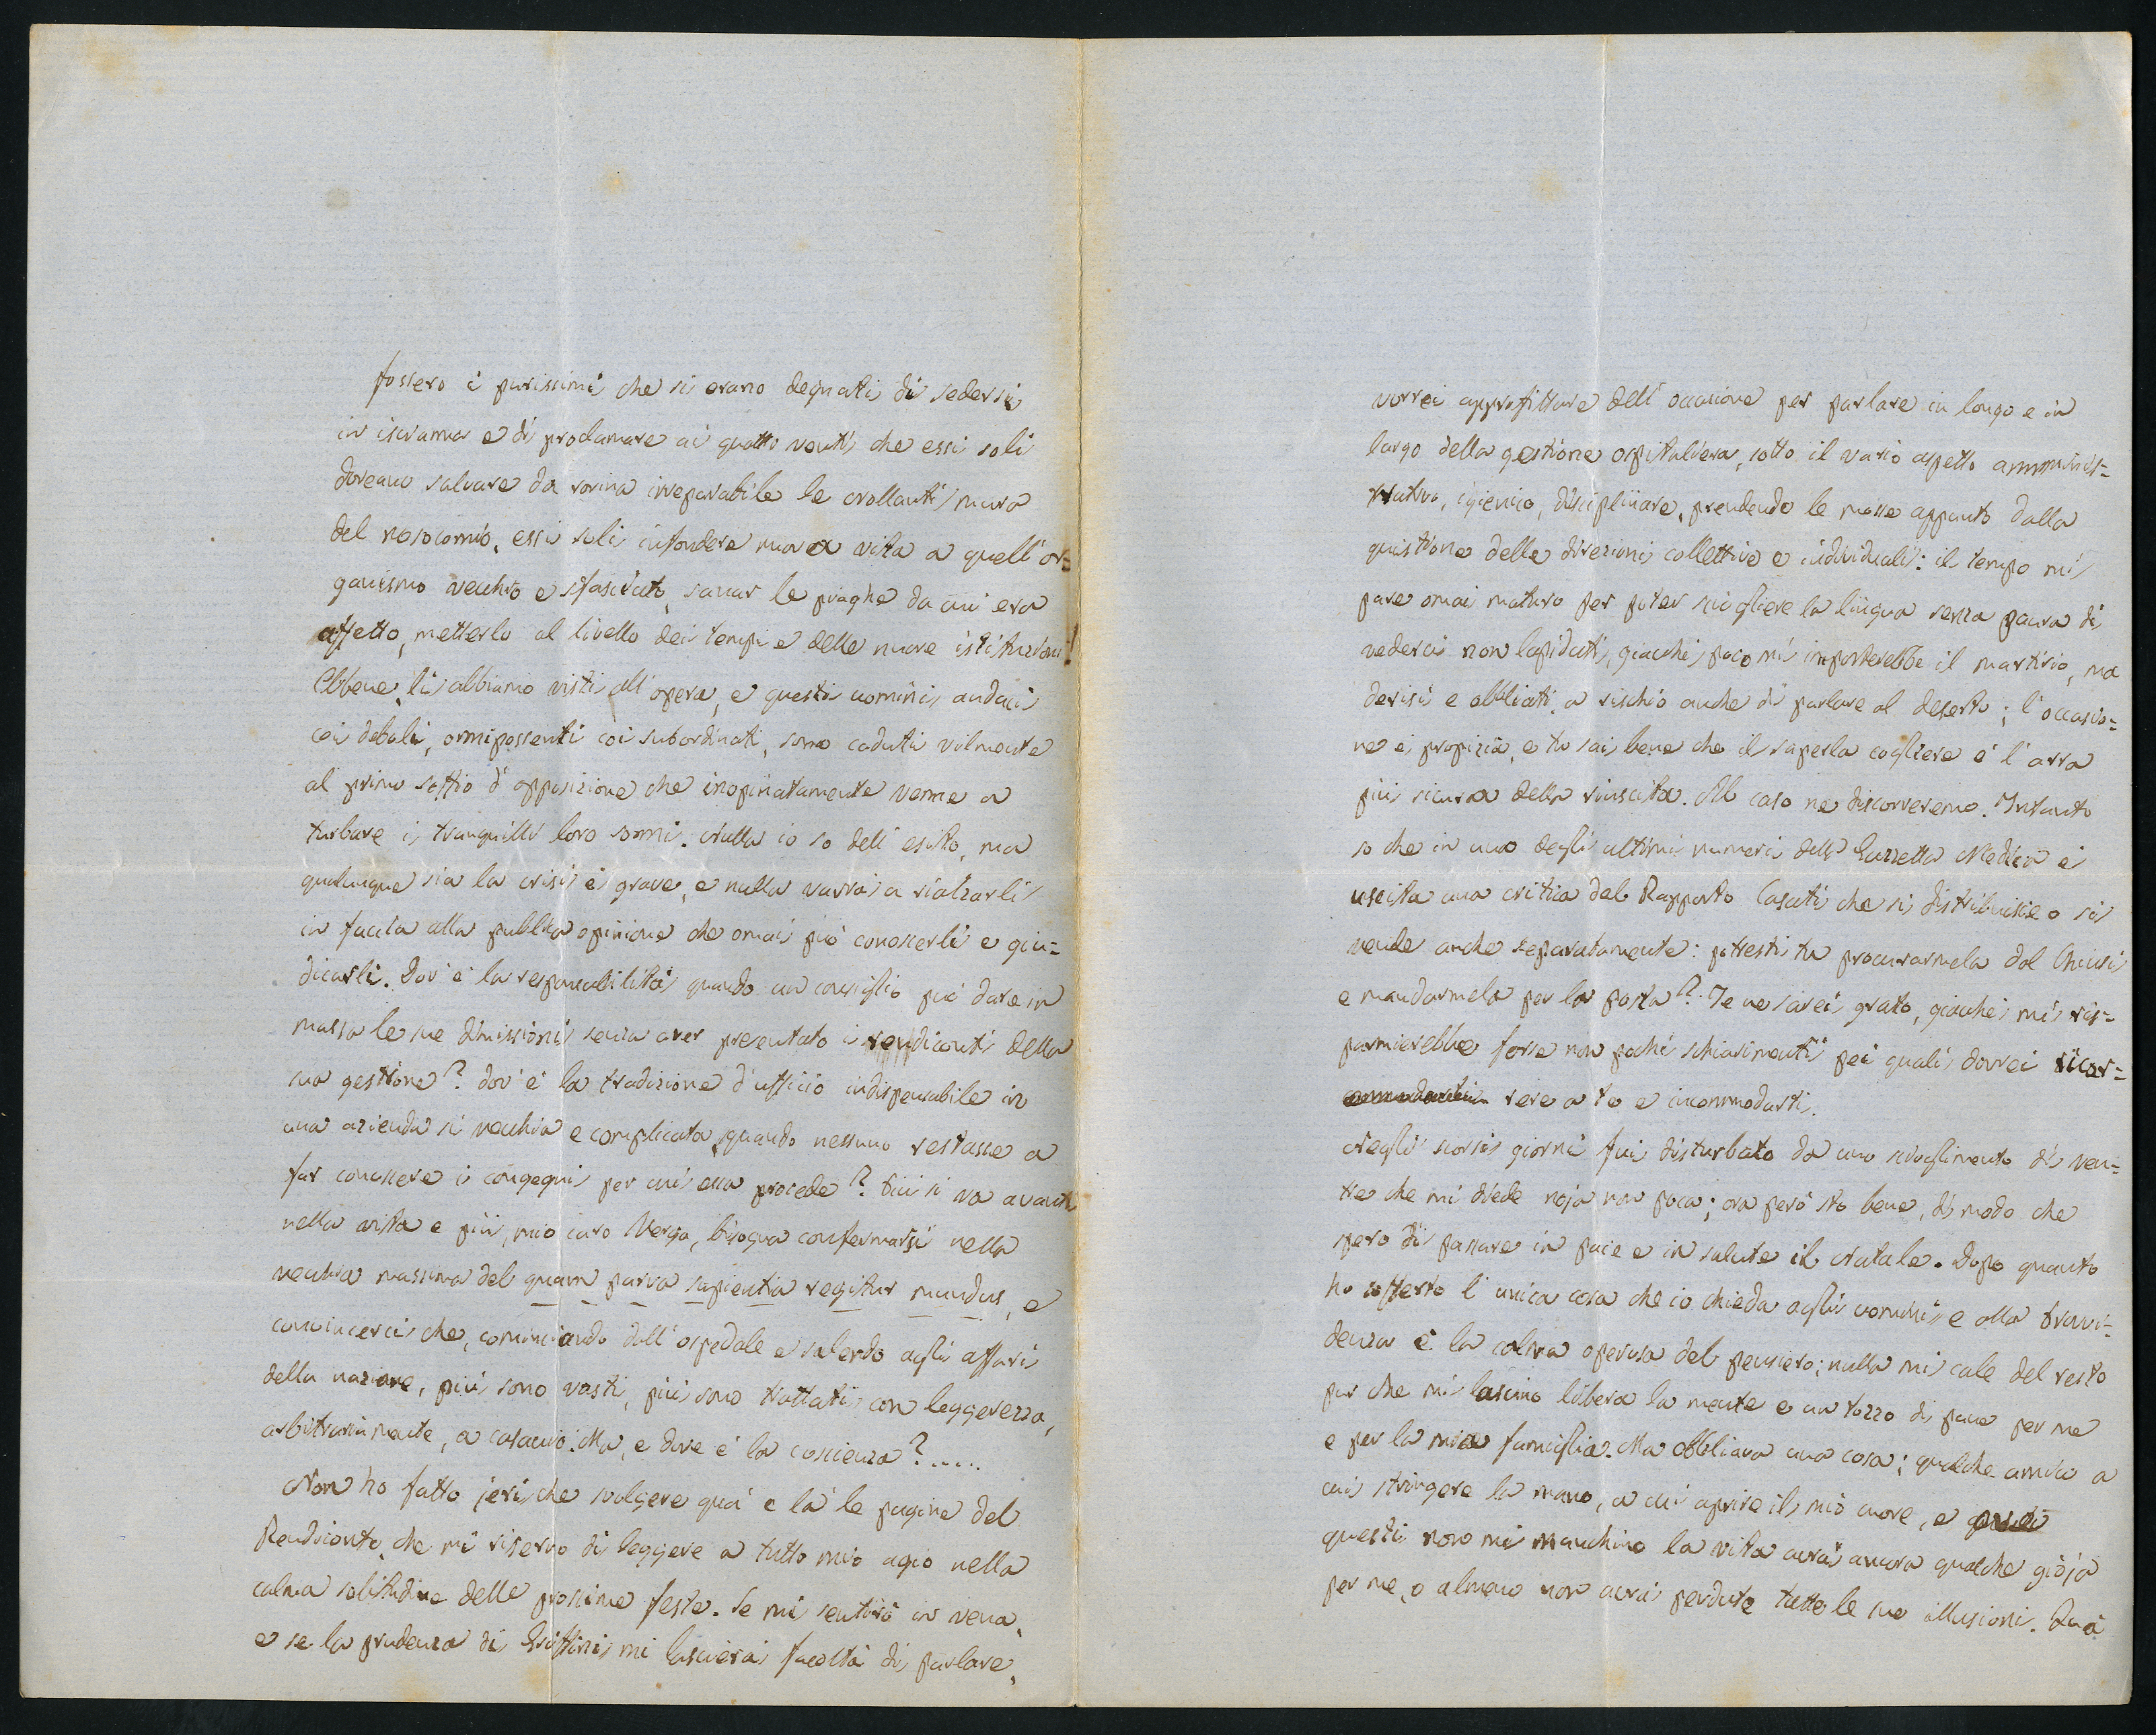 fossero i purissimi che si erano degnati di sedersi
in iscranna e di proclamare ai quattro venti che essi soli
doveano salvare da rovina irreparabile le crollanti mura
del nosocomio, essi soli infondere nuova vita a quell'or=
ganismo vecchio e sfasciato, sanar le piaghe da cui era
affetto, metterlo al livello dei tempi e delle nuove istituzioni!
Ebbene, li abbiamo visti all'opera, e questi uomini audaci
coi deboli, onnipossenti coi subordinati, sono caduti vilmente
al primo soffio d'opposizione che inopinatamente venne a
turbare i tranquilli loro sonni. Nulla io so dell'esito, ma
qualunque sia la crisi è grave, e nulla varrà a rialzarli
in faccia alla pubblica opinione che omai può conoscerli e giu=
dicarli. Dov'è la responsabilità quando un consiglio può dare in
massa le sue dimissioni senza aver presentato i rendiconti della
sua gestione? dov'è la tradizione d'ufficio indispensabile in
una azienda sì vecchia e complicata, quando nessuno restasse a
far conoscere i congegni per cui essa procede? Più si va avanti
nella vita e più, mio caro Verga, bisogna confermarsi nella
vecchia massima del quam parva sapientia regitur mundus, e
convincerci che, cominciando dall'ospedale e salendo agli affari
della nazione, più sono vasti, più sono trattati con leggerezza,
arbitrariamente, a casaccio. Ma, e dove è la coscienza?.....
Non ho fatto jeri che svolgere quà e là le pagine del
Rendiconto, che mi riservo di leggere a tutto mio agio nella
calma solitudine delle prossime feste. Se mi sentirò in vena,
e se la prudenza di Griffini mi lascierà facoltà di parlare,
vorrei approfittare dell'occasione per parlare in lungo e in
largo della gestione ospitaliera, sotto il vario aspetto amminis=
trativo, igienico, disciplinare, prendendo le mosse appunto dalla
quistione delle direzioni collettive e individuali: il tempo mi
pare omai maturo per poter sciogliere la lingua senza paura di
vederci non lapidati, giacchè poco mi importerebbe il martirio, ma
derisi e obbliati, a rischio anche di parlare al deserto; l'occasio=
ne è propizia, e tu sai bene che il saperla cogliere è l'arra
più sicura della riuscita. Al caso ne discorreremo. Intanto
so che in uno degli ultimi numeri della Gazzetta Medica è
uscita una critica del Rapporto Casati che si distribuisce o si
vende anche separatamente: potresti tu procurarmela dal Chiusi
e mandarmela per la posta? Te ne sarei grato, giacchè mi ris=
parmierebbe forse non pochi schiarimenti pei quali dovrei ricor=
rere a te e incommodarti.
Negli scorsi giorni fui disturbato da uno scioglimento di ven=
tre che mi diede noja non poca; ora però sto bene, di modo che
spero di passare in pace e in salute il Natale. Dopo quanto
ho sofferto l'unica cosa che io chieda agli uomini e alla Provvi=
denza è la calma operosa del pensiero; nulla mi cale del resto
pur che mi lascino libera la mente e un tozzo di pane per me
e per la mia famiglia. Ma obbliava una cosa; qualche amico a
cui stringere la mano, a cui aprire il mio cuore, e
questi non mi manchino la vita avrà ancora qualche gioja
per me, o almeno non avrà perduto tutte le sue illusioni. Quà